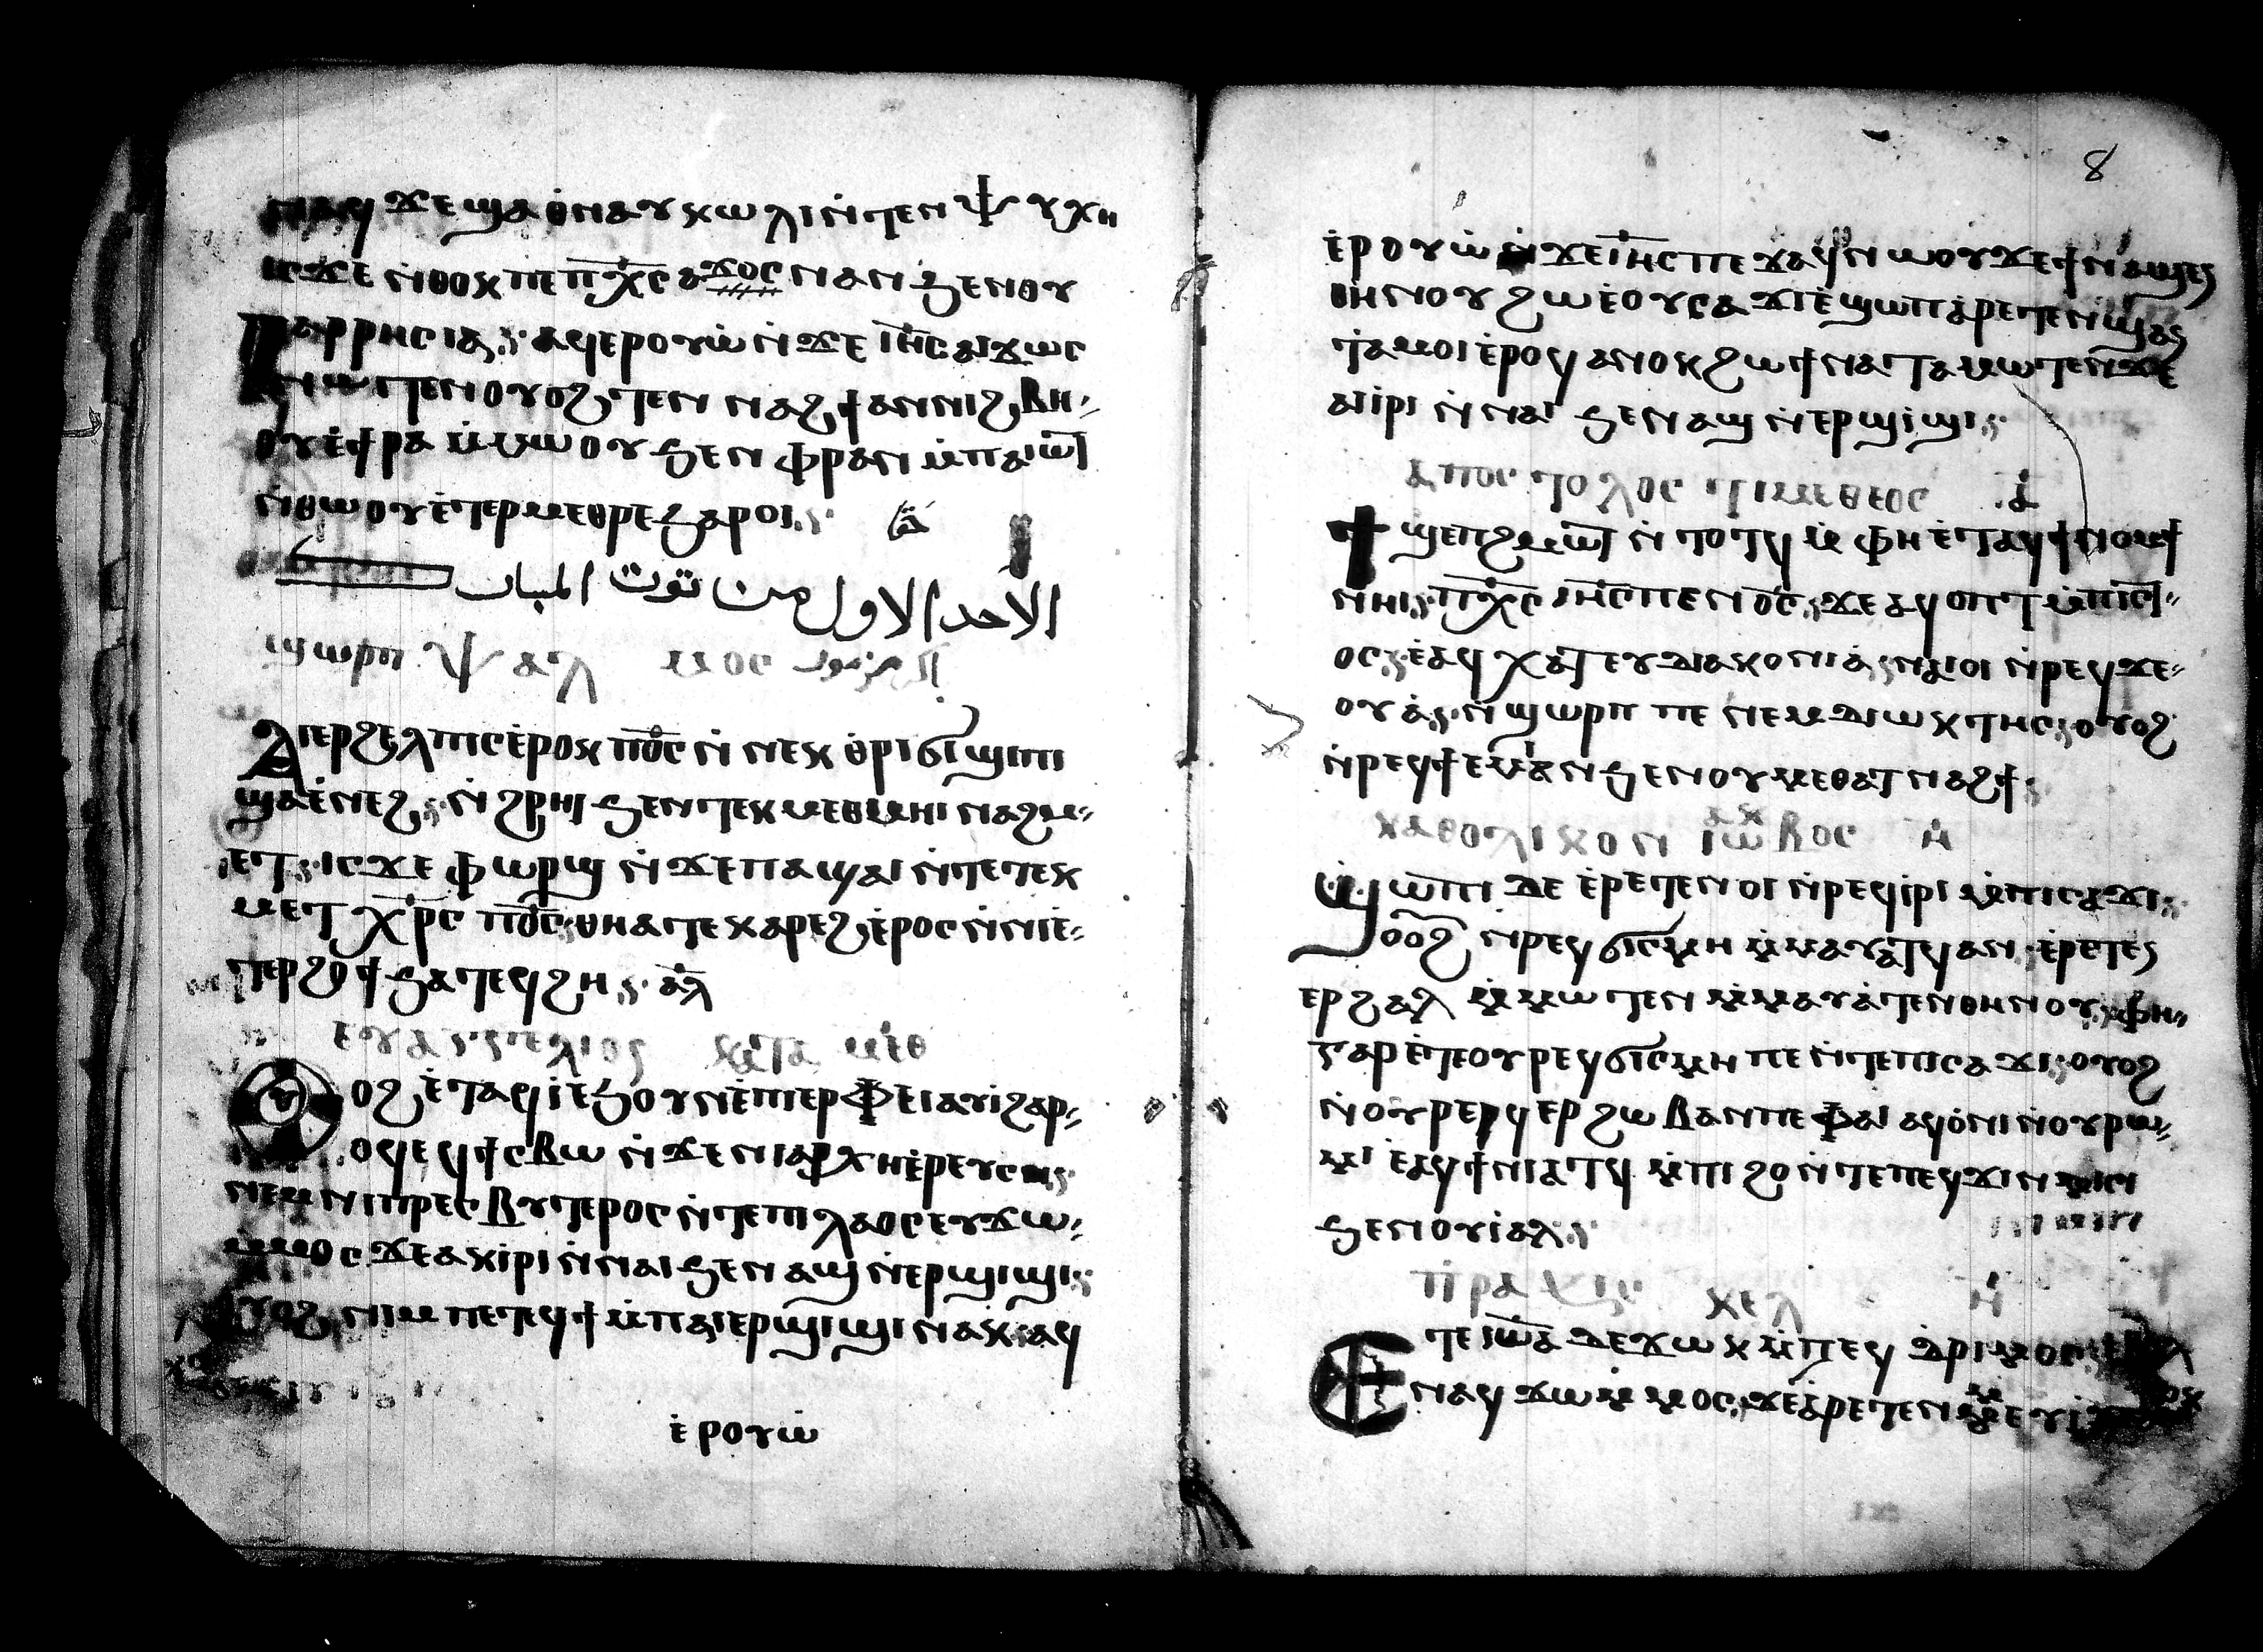 ⲛⲁϥ ϫⲉ ϣⲁ ⲑⲛⲁⲩ ⲕⲱⲗⲓ ⲛ̇ⲧⲉⲛⲯⲩⲭⲏ
ⲓⲥϫⲉ ⲛ̇ⲑⲟⲕ ⲡⲉ ⲡⲭ̅ⲥ ⲁϫⲟⲥ ⲛⲁⲛ ϧⲉⲛⲟⲩ
ⲡⲁⲣⲣⲏⲥⲓⲁ ⲁϥⲉⲣⲟⲩⲱ̇ ⲛ̇ϫⲉ ⲓⲏ̅ⲥ ⲁⲓϫⲟⲥ
ⲛⲱⲧⲉⲛ ⲟⲩⲟϩ ⲧⲉⲛⲛⲁϩϯ ⲁⲛ ⲛⲓϩⲃⲏ
ⲟⲩⲉ̇ ϯⲣⲁ ⲙ̇ⲙⲱⲟⲩ ϧⲉⲛ ⲫⲣⲁⲛ ⲙ̇ⲡⲁⲓⲱ̅ⲧ
ⲛ̇ⲑⲱⲟⲩ ⲉ̇ⲧⲉⲣⲙⲉⲑⲣⲉ ϧⲁⲣⲟⲓ
الاحد الاول من توت المبارك
ϣⲱⲣⲡ ⲯⲁⲗⲙⲟⲥ المزمور
ⲁⲓⲉⲣϩⲉⲗⲡⲓⲥ ⲉ̇ⲣⲟⲕ ⲡⲟ̅ⲥ ⲛ̇ⲛⲉⲕ ⲑⲣⲓϭⲓϣⲓⲡⲓ
ϣⲁ ⲉ̇ⲛⲉϩ ⲛ̇ϩⲣⲏⲓ ϧⲉⲛ ⲧⲉⲕⲙⲉⲑⲙⲏⲓ ⲛⲁϩⲙ
ⲉⲧ ⲓⲥϫⲉ ⲫⲱⲣϣ ⲛ̇ϫⲉ ⲡⲁϣⲁⲓ ⲛ̇ⲧⲉ ⲧⲉⲕ
ⲙⲉⲧⲭⲣ̅ⲥ ⲡⲟ̅ⲥ ⲑⲏ ⲁⲧⲉⲕⲁⲣⲉϩ ⲉ̇ⲣⲟⲥ ⲛ̇ⲛⲓⲉ̇
ⲧⲉⲣϩⲟϯ ϧⲁⲧⲉϥϩⲏ ⲁ̅ⲗ
ⲉⲩⲁⲅⲅⲉⲗⲓⲟⲥ ⲕⲁⲧⲁ ⲙⲁⲑ
ⲟⲩⲟϩ ⲉ̇ⲧⲁϥⲓ̇ ⲉ̇ϧⲟⲩⲛ ⲉ̇ⲡⲓⲉⲣⲫⲉⲓ ⲁⲩⲓ̇ ϩⲁⲣ
ⲟϥ ⲉϥϯⲥⲃⲱ ⲛ̇ϫⲉ ⲛⲓⲁⲣⲭⲏⲉ̇ⲣⲉⲩⲥ
ⲛⲉⲙ ⲛⲓⲡⲣⲉⲥⲃⲩⲧⲉⲣⲟⲥ ⲛ̇ⲧⲉ ⲡⲓⲗⲁⲟⲥ ⲉⲩϫⲱ
ⲙ̇ⲙⲟⲥ ϫⲉ ⲁⲕⲓ̇ⲣⲓ ⲛ̇ⲛⲁⲓ ϧⲉⲛ ⲁϣ ⲛ̇ⲉⲣϣⲓϣⲓ
ⲟⲩⲟϩ ⲛⲓⲙ ⲡⲉⲧⲉϥϯ ⲙ̇ⲡⲁⲓⲉⲣϣⲓϣⲓ ⲛⲁⲕ ⲁϥ
ⲉ̇ⲣⲟⲩⲱ̇
8
ⲉ̇ⲣⲟⲩⲱ̇ ⲛ̇ϫⲉ ⲓⲏ̅ⲥ ⲡⲉϫⲁϥ ⲛⲱⲟⲩ ϫⲉ ϯⲛⲁϣⲉⲛ
ⲑⲏⲛⲟⲩ ϩⲱ ⲉ̇ⲟⲩⲥⲁϫⲓ ⲉ̇ϣⲱⲡ ⲁ̇ⲣⲉⲧⲉⲛϣⲁⲛ
ⲧⲁⲙⲟⲓ ⲉ̇ⲣⲟϥ ⲁⲛⲟⲕ ϩⲱ ϯⲛⲁⲧⲁⲙⲱⲧⲉⲛ ϫⲉ
ⲁⲓⲓ̇ⲣⲓ ⲛ̇ⲛⲁⲓ ϧⲉⲛ ⲁϣ ⲛ̇ⲉⲣϣⲓϣⲓ
ⲁ̇ⲡⲟⲥⲧⲟⲗⲟⲥ ⲧⲓⲙⲉⲑⲉⲟⲥ ⲁ̇
ϯϣⲉⲡϩⲙⲱ̅ⲧ ⲛ̇ⲧⲟⲧϥ ⲙ̇ⲫⲏ ⲉ̇ⲧⲁϥϯⲛⲟⲙϯ
ⲛⲏⲓ ⲡⲭ̅ⲥ ⲓⲏ̅ⲥ ⲡⲉⲛⲟ̅ⲥ ϫⲉ ⲁϥⲟⲡⲧ ⲙ̇ⲡⲓⲥⲧ
ⲟⲥ ⲉ̇ⲁϥⲭⲁⲧ ⲉⲩⲇⲓⲁⲕⲟⲛⲓⲁ ⲛⲁⲓⲟⲓ ⲛ̇ⲣⲉϥϫⲉ
ⲟⲩⲁ̇ ⲛ̇ϣⲱⲣⲡ ⲡⲉ ⲛⲉⲙ ⲇⲓⲱⲕⲧⲏⲥ ⲟⲩⲟϩ
ⲛ̇ⲣⲉϥϯⲉⲙⲕⲁⲛ ϧⲉⲛ ⲟⲩⲙⲉⲑⲁⲧⲛⲁϩϯ
ⲕⲁⲑⲟⲗⲓⲕⲟⲛ ⲓⲁⲕⲱⲃⲟⲥ ⲏ̇
ϣⲱⲡⲓ ⲇⲉ ⲉ̇ⲣⲉⲧⲉⲛⲟⲓ ⲛ̇ⲣⲉϥⲓ̇ⲣⲓ ⲙ̇ⲡⲓⲥⲁϫⲓ
ⲟⲩⲟϩ ⲛ̇ⲣⲉϥϭⲓⲥⲙⲏ ⲙ̇ⲙⲁⲩⲁⲧϥ ⲁⲛ ⲉ̇ⲣⲉⲧⲉⲛ
ⲉⲣϩⲁⲗ ⲙ̇ⲙⲱⲧⲉⲛ ⲙ̇ⲙⲁⲩⲁ̇ⲧⲉⲛⲑⲏⲛⲟⲩ ⲫⲏ
ⲅⲁⲣ ⲉ̇ⲧⲉ ⲟⲩⲣⲉϥϭⲓⲥⲙⲏ ⲡⲉ ⲛ̇ⲧⲉ ⲡⲓⲥⲁϫⲓ ⲟⲩⲟϩ
ⲛ̇ⲟⲩⲣⲉϥⲉⲣϩⲱⲃ ⲁⲛ ⲡⲉ ⲫⲁⲓ ⲁϥⲟ̇ⲛⲓ ⲛ̇ⲟⲩⲣⲱ
ⲙⲓ ⲉⲁϥϯⲛⲓⲁⲧϥ ⲙ̇ⲡⲓϩⲟ ⲛ̇ⲧⲉ ⲡⲉϥϫⲓⲛⲙⲓⲥⲓ
ϧⲉⲛ ⲟⲩⲓ̇ⲁⲗ
ⲡⲣⲁⲝⲓⲥ ⲕⲉⲗ ⲏ̇
ⲉⲧⲉ ⲓⲱ̅ⲁ ⲇⲉ ϫⲱⲕ ⲙ̇ⲡⲉϥ ⲇⲣⲓⲙⲟⲥ
ⲛⲁϥϫⲱ ⲙ̇ⲙⲟⲥ ϫⲉ ⲁ̇ⲣⲉⲧⲉⲛⲙⲉⲩⲓ